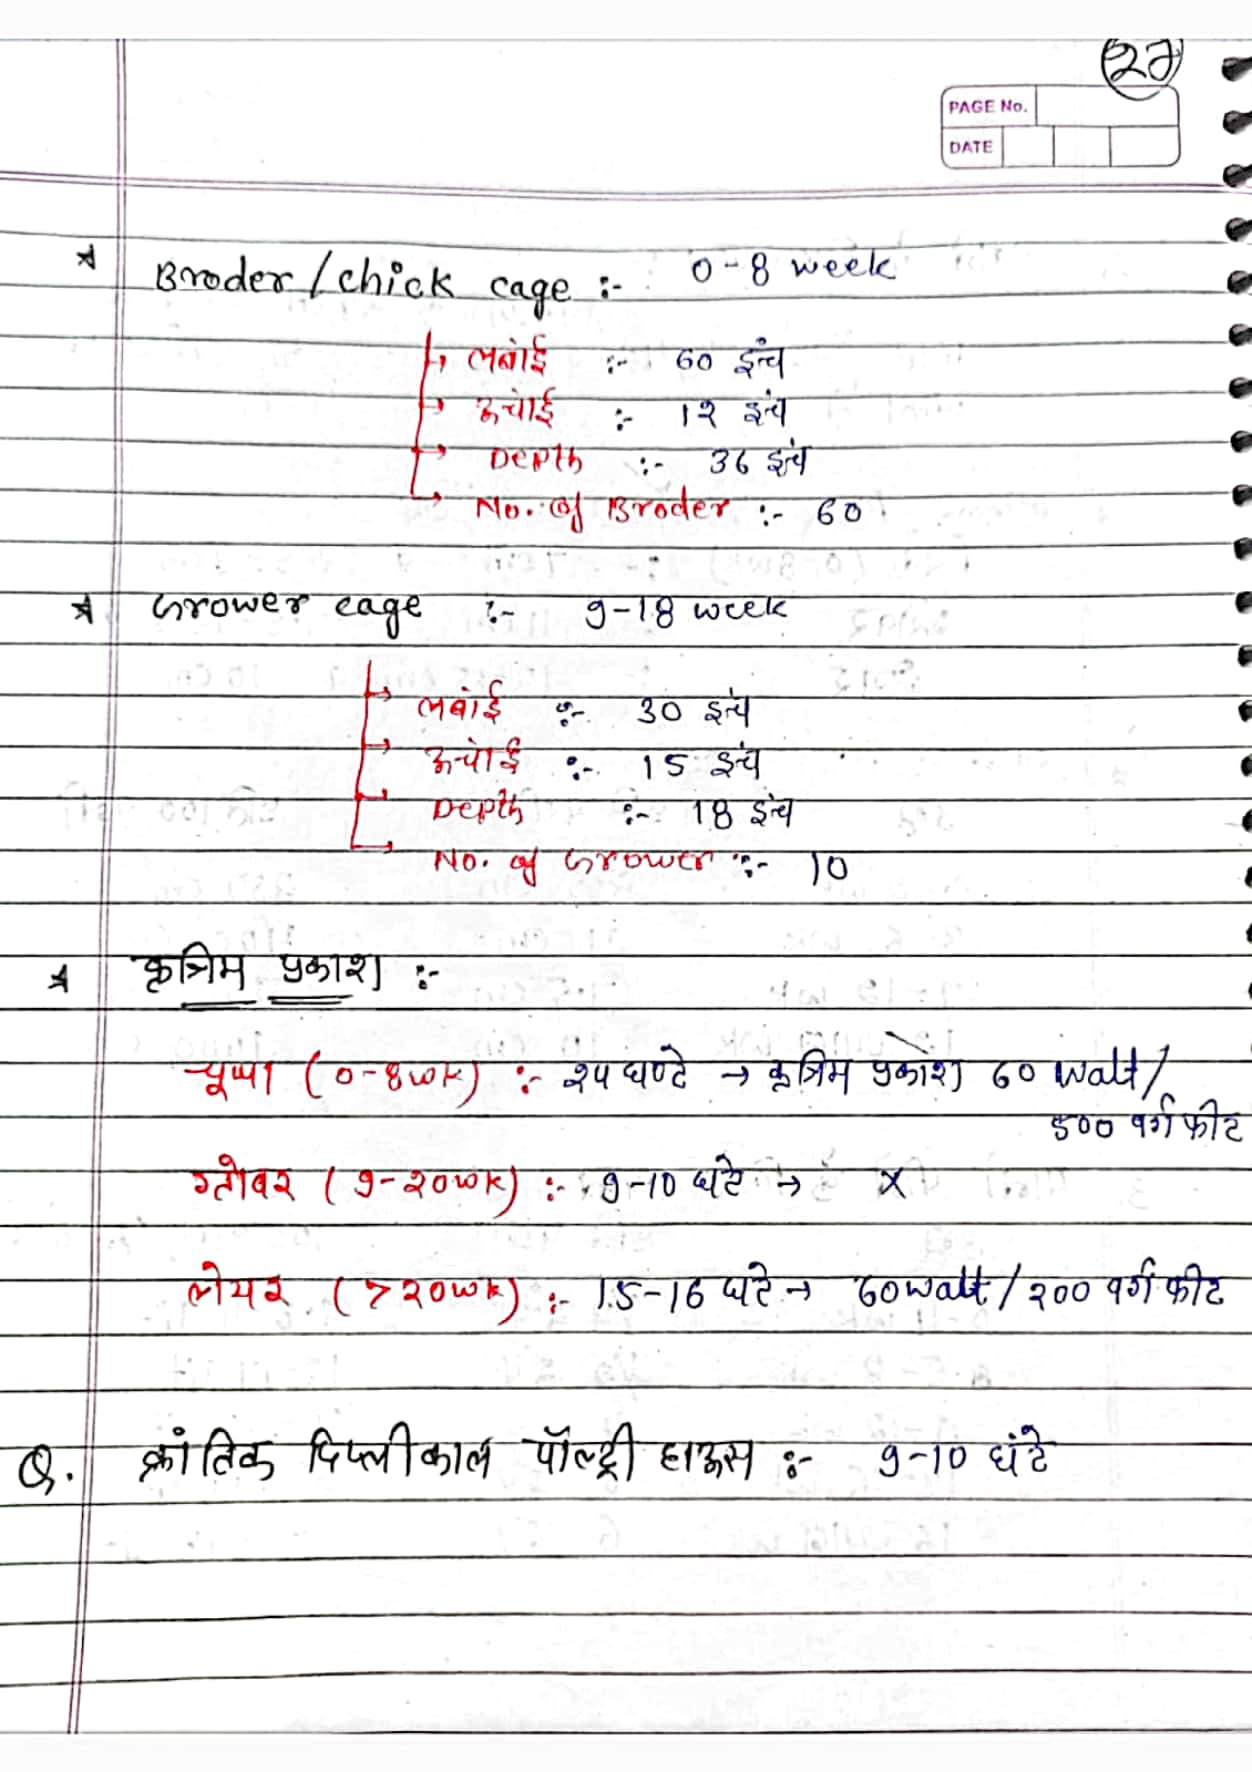 27
PAGE No.
DATE
★ Broder/chick cage :- 0-8 week
→ लबांई :- 60 इंच
→ ऊचांई :- 12 इंच
→ Depth :- 36 इंच
→ No. of Broder :- 60
★ Grower cage :- 9-18 week
→ लबांई :- 30 इंच
→ ऊचांई :- 15 इंच
→ Depth :- 18 इंच
→ No. of Grower :- 10
★ कृत्रिम प्रकाश :-
(0-8wk) :- घण्टे → कृत्रिम प्रकाश 60 watt/
500 वर्ग फीट
ग्रोवर (9-20wk) :- 9-10 घंटे → X
लेयर (>20wk) :- 15-16 घंटे → 60watt/200 वर्ग फीट
Q. क्रांतिक दिप्तीकाल पॉल्ट्री हाऊस :- 9-10 घंटे